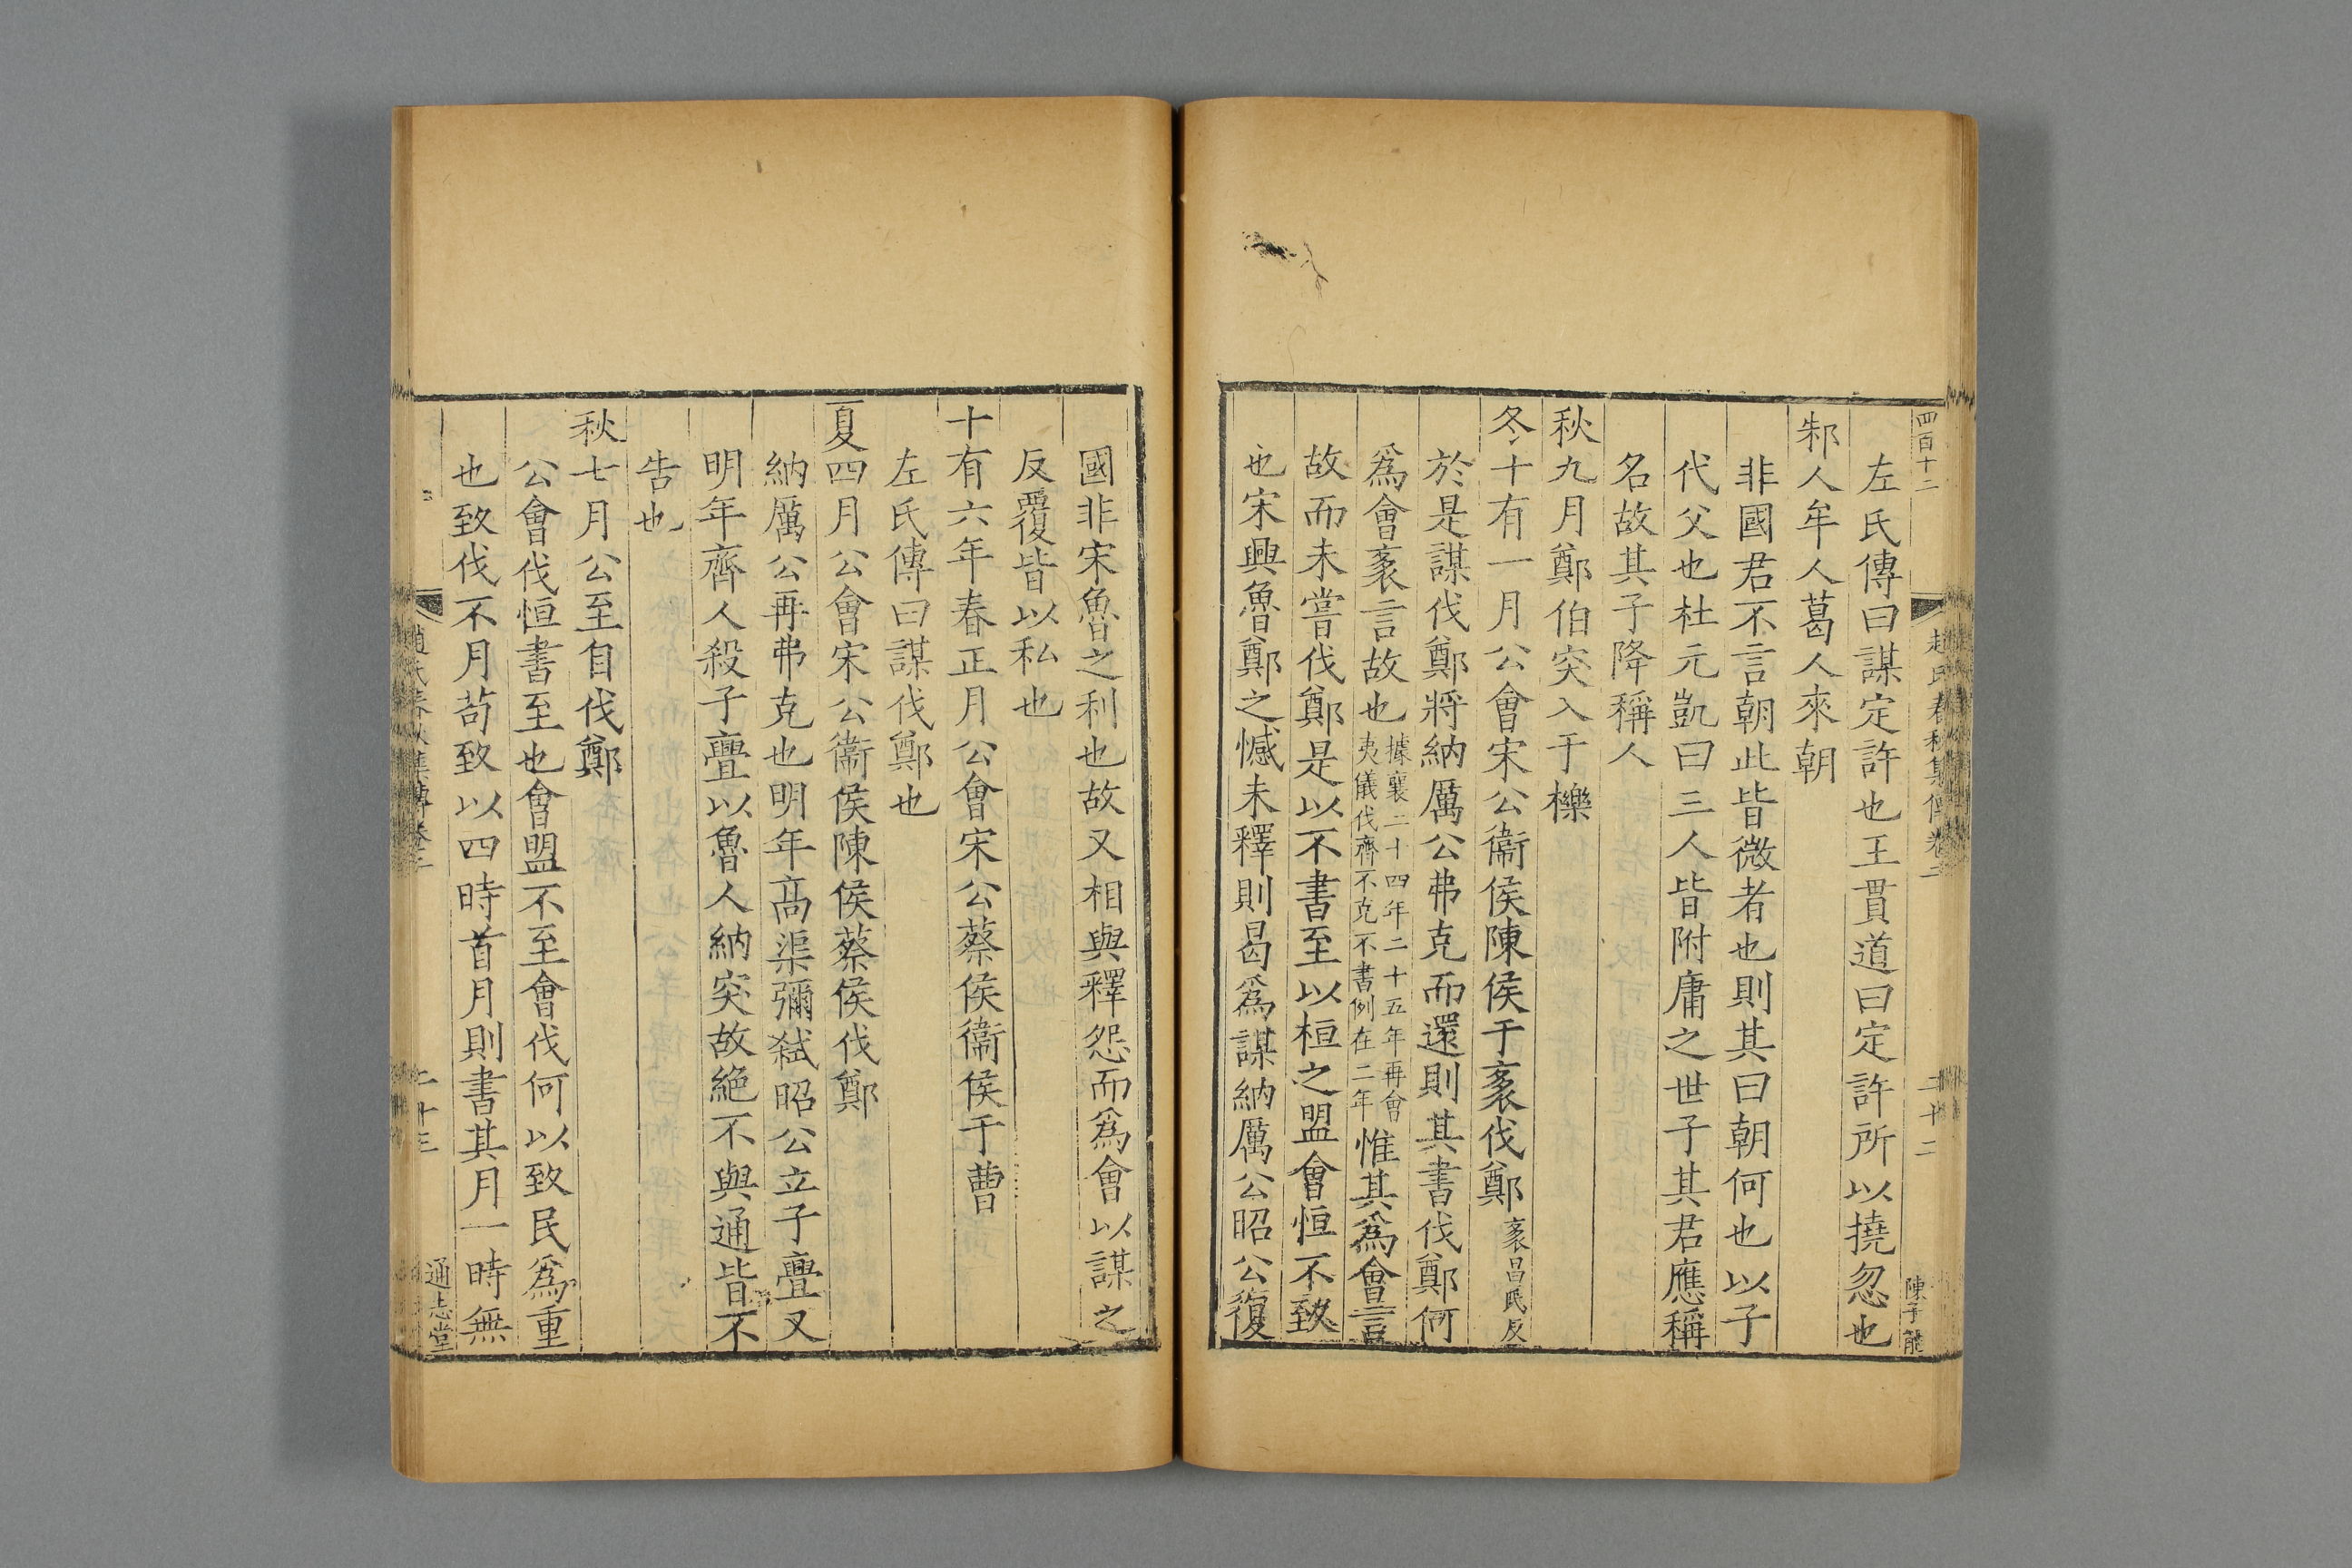 四百十二
趙氏春秋集傳卷二
二十二
陳子能
左氏傳曰謀定許也王貫道曰定許所以撓忽也
邾人牟人葛人來朝
非國君不言朝此皆微者也則其曰朝何也以子
代父也杜元凱曰三人皆附庸之世子其君應稱
名故其子降稱人
秋九月鄭伯突入于櫟
冬十有一月公會宋公衞侯陳侯于袲伐鄭袲昌氏反
於是謀伐鄭將納厲公弗克而還則其書伐鄭何
爲會袲言故也據襄二十四年二十五年再會夷儀伐齊不克不書例在二年惟其爲會言
故而未嘗伐鄭是以不書至以桓之盟會恒不致
也宋興魯鄭之憾未釋則曷爲謀納厲公昭公復
國非宋魯之利也故又相與釋怨而爲會以謀之
反覆皆以私也
十有六年春正月公會宋公蔡侯衞侯于曹
左氏傳曰謀伐鄭也
夏四月公會宋公衞侯陳侯蔡侯伐鄭
納厲公再弗克也明年高渠彌弒昭公立子亹又
明年齊人殺子亹以魯人納突故絶不與通皆不
告也
秋七月公至自伐鄭
公會伐恒書至也會盟不至會伐何以致民爲重
也致伐不月茍致以四時首月則書其月一時無
趙氏春秋集傳卷二
二十三
通志堂